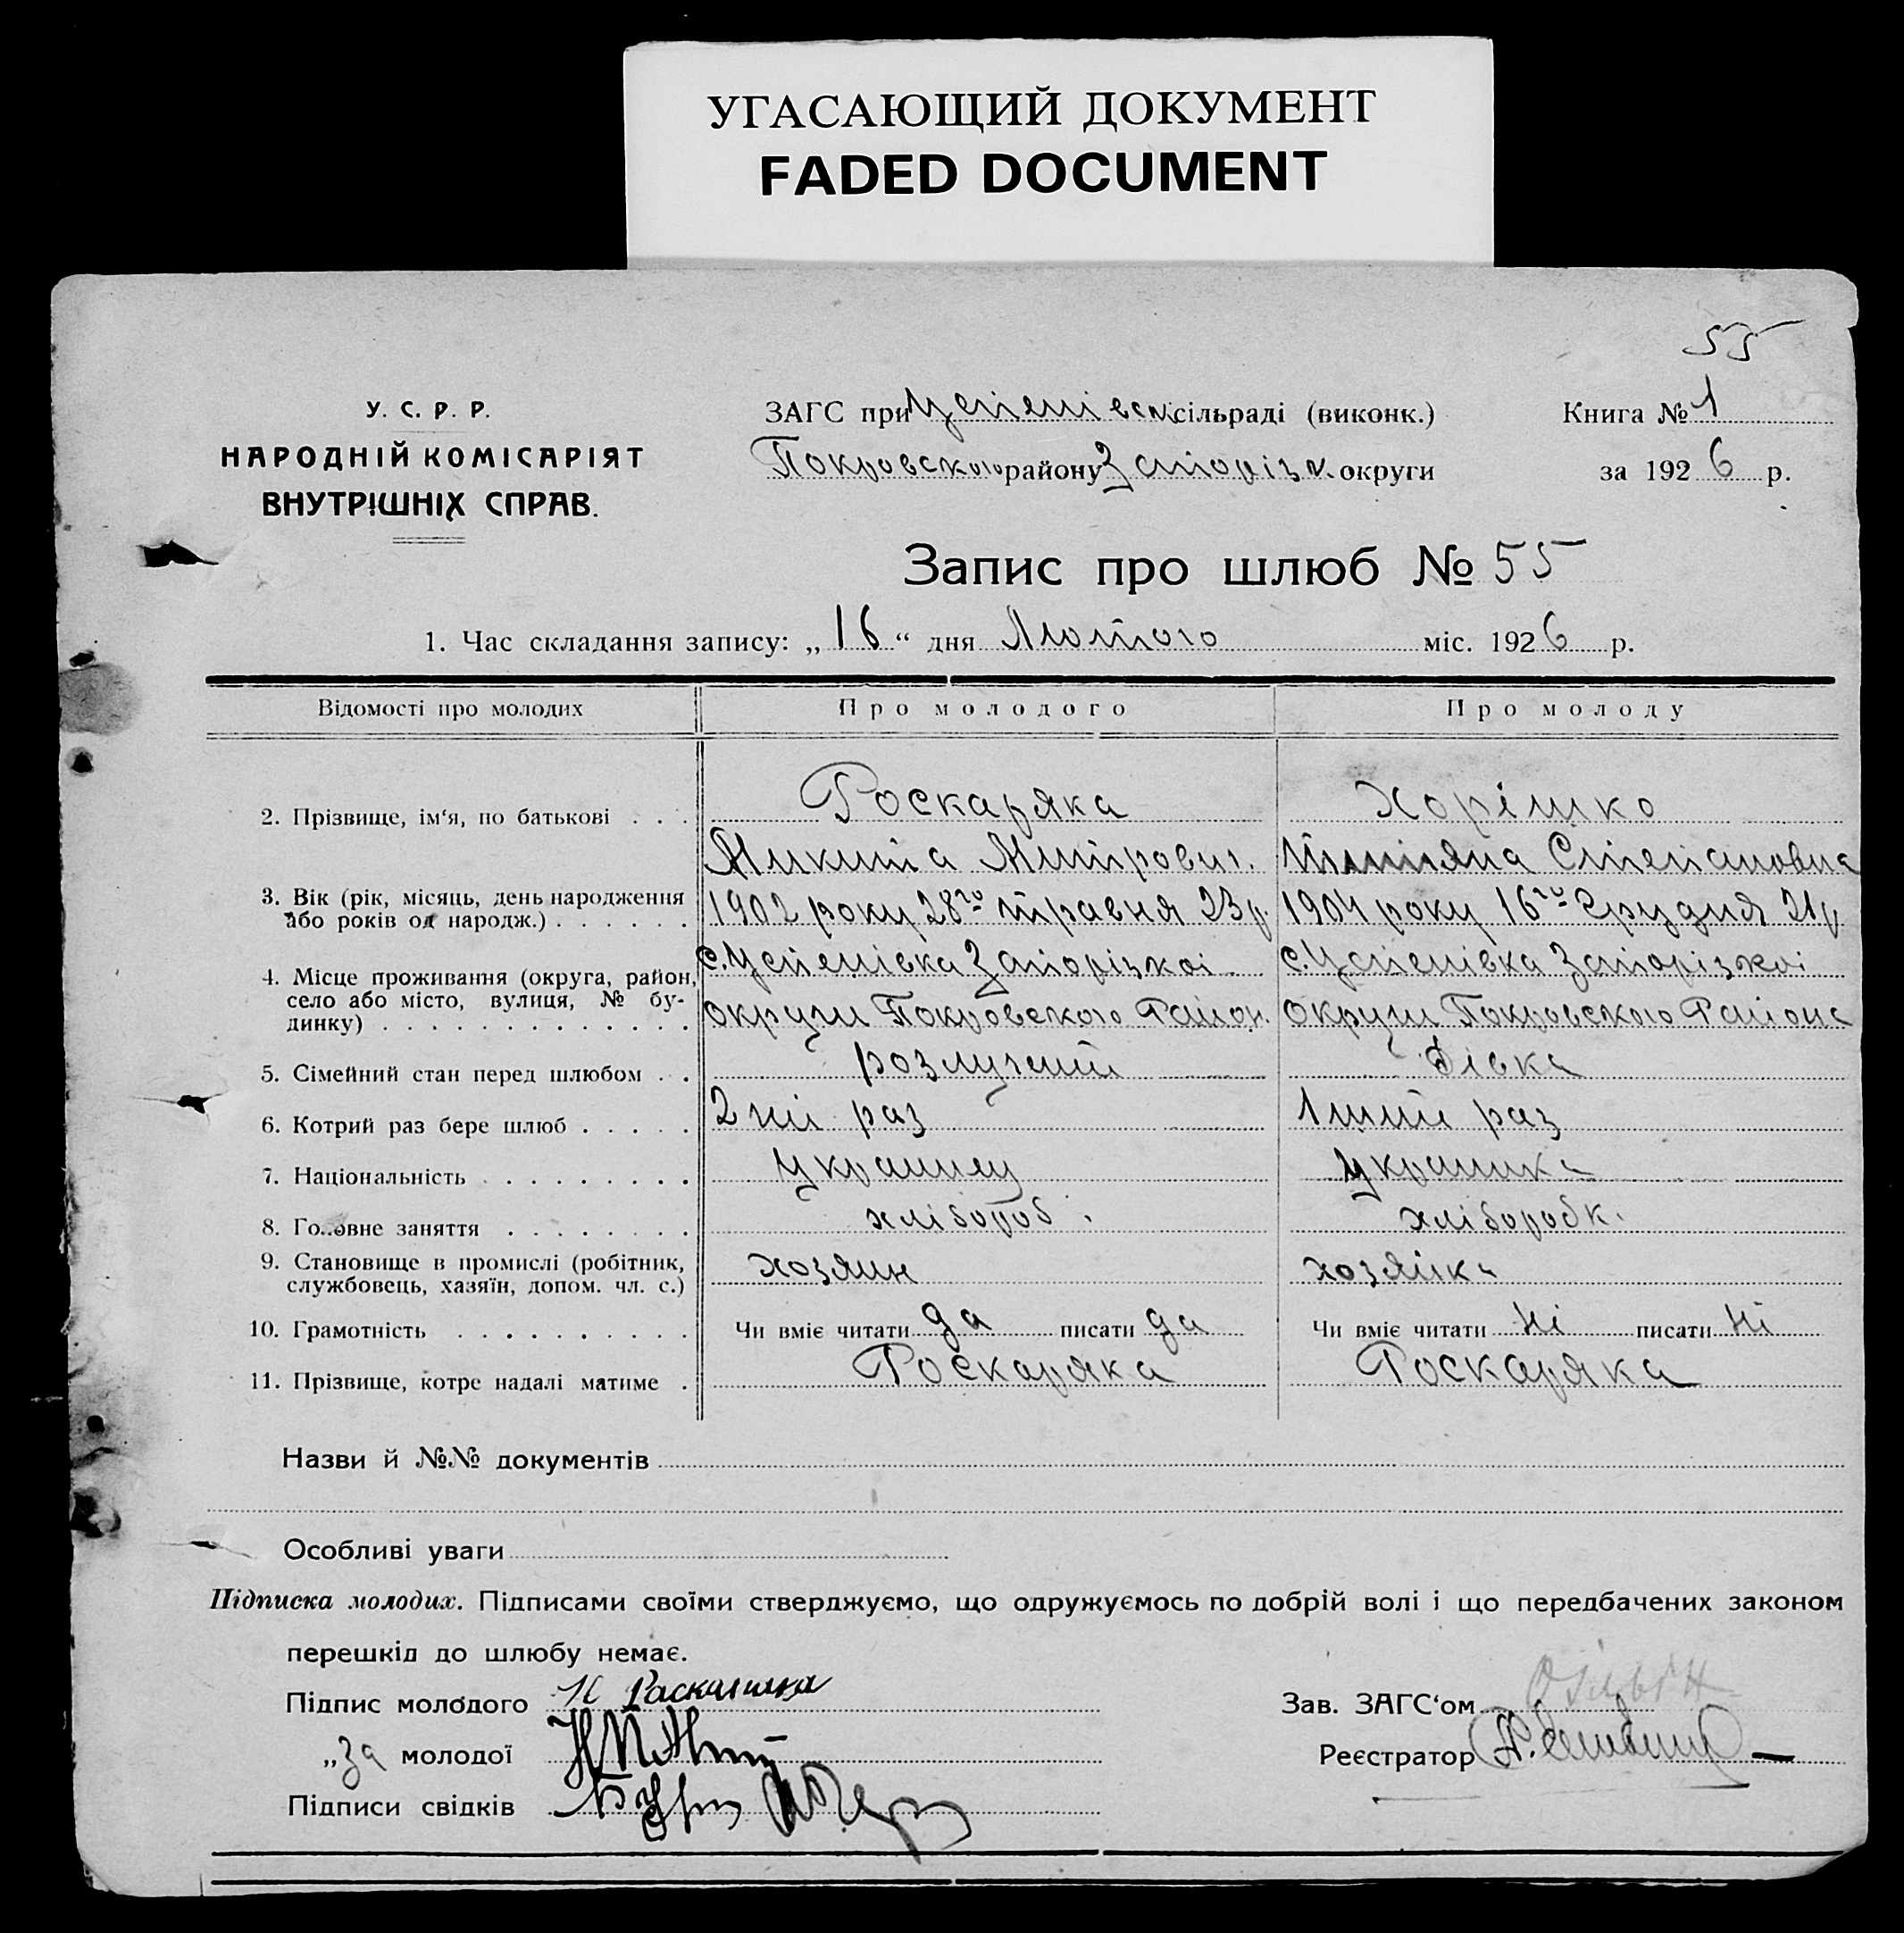 УГАСАЮЩИЙ ДОКУМЕНТ
FADED DOCUMENT
55
У. С. Р. Р.
НАРОДНІЙ КОМІСАРІЯТ
ВНУТРІШНІХ СПРАВ.
ЗАГС при Успенівск сільраді (виконк.)
Покровского району Запорізк. округи
Книга № 1
за 1926 р.
Запис про шлюб № 55
1. Час складання запису: „16“ дня Лютого міс. 1926 р.
Відомості про молодих Про молодого Про молоду
2. Прізвище, ім‘я, по батькові . . . Роскаряка Хорішко
Микита Митрович. Тетяна Степановна
3. Вік (рік, місяць, день народження або років од народж.) . . . . . . 1902 року 28го травня 23р. 1904 року 16го Грудня 21р.
4. Місце проживання (округа, район, село або місто, вулиця, № бу-динку) . . . . . . . . . . . . . с. Успенівка Запорізкоі с. Успенівка Запорізкоі
округи Покровского Район. округи Покровского Района
5. Сімейний стан перед шлюбом . . розлучений дівка
6. Котрий раз бере шлюб . . . . . 2 гий раз 1ший раз
7. Національність . . . . . . . . . Украинец Украинка
8. Головне заняття . . . . . . . . хлібороб. хлібородк.
9. Становище в промислі (робітник, службовець, хазяїн, допом. чл. с.) хозяин хозяйка
10. Грамотність . . . . . . . . . . Чи вміє читати да писати да Чи вміє читати ні писати ні
11. Прізвище, котре надалі матиме . Роскаряка Роскаряка
Назви й №№ документів
Особливі уваги
Підписка молодих. Підписами своїми стверджуємо, що одружуємось по добрій волі і що передбачених законом
перешкід до шлюбу немає.
Підпис молодого Н
Зав. ЗАГС‘ом
„За молодої
Реєстратор
Підписи свідків